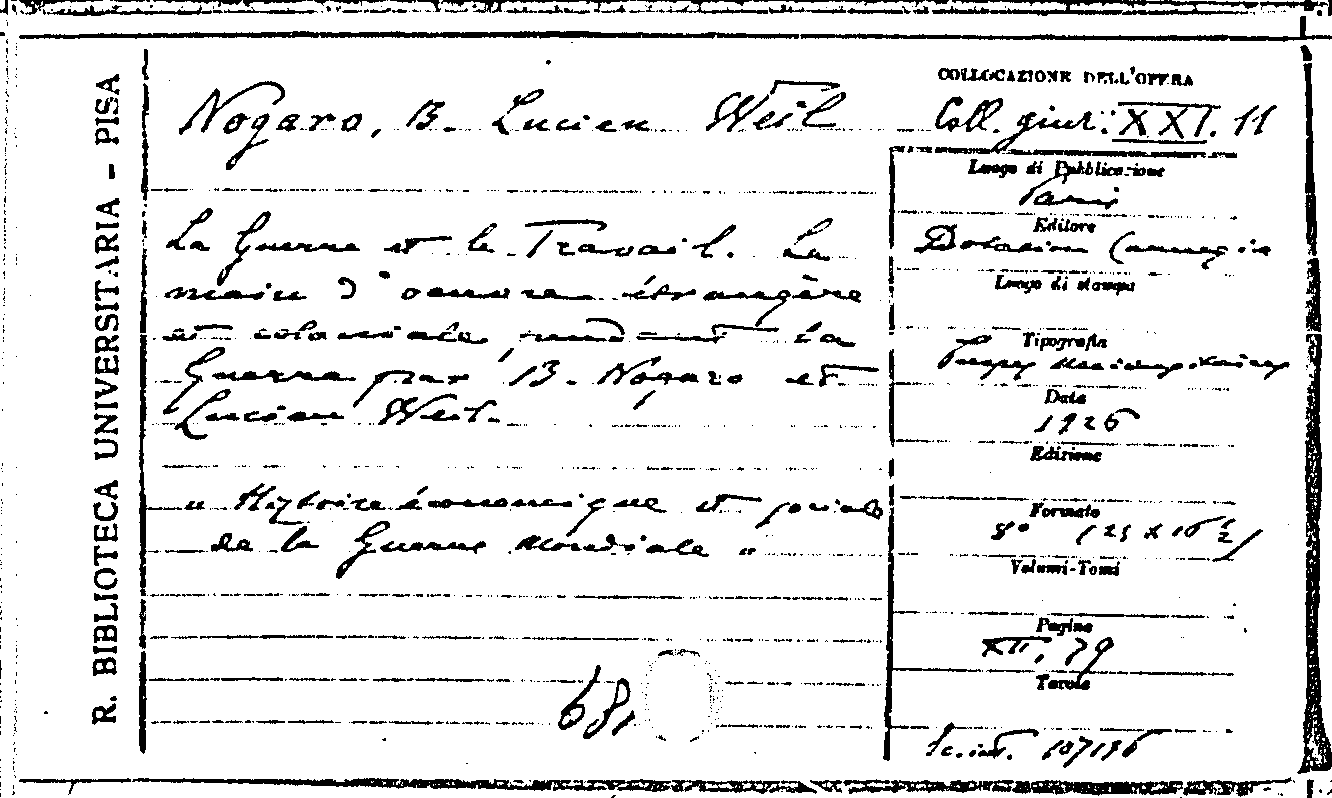 R. BIBLIOTECA UNIVERSITARIA - PISA
Nogaro, B. Lucien Weil
La Guerre et le Travail. La
main d'oeuvre étrangère
et coloniale pendant la
Guerre par B. Nogaro et
Lucien Weil.
"Histoire économique et sociale
de la Guerre Mondiale"
681
COLLOCAZIONE DELL'OPERA
Coll. giur: XXI. 11
Luogo di Pubblicazione
Paris
Editore
Dotation Carnegie
Luogo di stampa
Tipografia
Presses Universitaires
Data
1926
Edizione
Formato
8° (25 x 16 ½)
Volumi-Tomi
Pagine
XII, 79
Tavole
107196